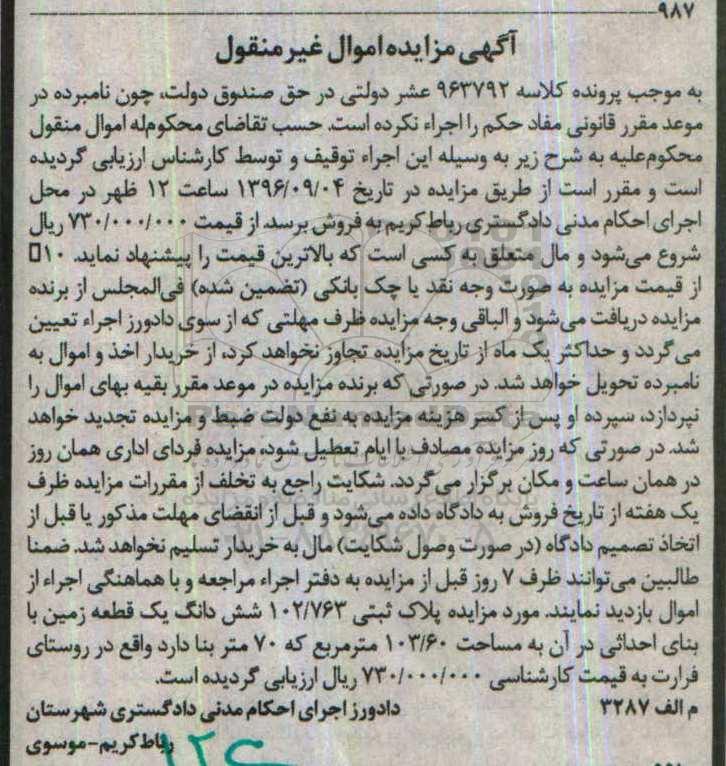 ۹۸۷
آگهی مزایده اموال غیرمنقول
به موجب پرونده کلاسه ۹۶۳۷۹۲ عشر دولتی در حق صندوق دولت، چون نامبرده در
موعد مقرر قانونی مفاد حکم را اجراء نکرده است. حسب تقاضای محکوم‌له اموال منقول
محکوم‌علیه به شرح زیر به وسیله این اجراء توقیف و توسط کارشناس ارزیابی گردیده
است و مقرر است از طریق مزایده در تاریخ ۱۳۹۶/۰۹/۰۴ ساعت ۱۲ ظهر در محل
اجرای احکام مدنی دادگستری رباط‌کریم به فروش برسد. از قیمت ۷۳۰/۰۰۰/۰۰۰ ریال
شروع می‌شود و مال متعلق به کسی است که بالاترین قیمت را پیشنهاد نماید. ۱۰
از قیمت مزایده به صورت وجه نقد یا چک بانکی (تضمین شده) فی‌المجلس از برنده
مزایده دریافت می‌شود و الباقی وجه مزایده ظرف مهلتی که از سوی دادورز اجراء تعیین
می‌گردد و حداکثر یک ماه از تاریخ مزایده تجاوز نخواهد کرد، از خریدار اخذ و اموال به
نامبرده تحویل خواهد شد. در صورتی که برنده مزایده در موعد مقرر بقیه بهای اموال را
نپردازد، سپرده او پس از کسر هزینه مزایده به نفع دولت ضبط و مزایده تجدید خواهد
شد. در صورتی که روز مزایده مصادف با ایام تعطیل شود، مزایده فردای اداری همان روز
در همان ساعت و مکان برگزار می‌گردد. شکایت راجع به تخلف از مقررات مزایده ظرف
یک هفته از تاریخ فروش به دادگاه داده می‌شود و قبل از انقضای مهلت مذکور یا قبل از
اتخاذ تصمیم دادگاه (در صورت وصول شکایت) مال به خریدار تسلیم نخواهد شد. ضمنا
طالبین می‌توانند ظرف ۷ روز قبل از مزایده به دفتر اجراء مراجعه و با هماهنگی اجراء از
اموال بازدید نمایند. مورد مزایده پلاک ثبتی ۱۰۲/۷۶۳ شش دانگ یک قطعه زمین با
بنای احداثی در آن به مساحت ۱۰۳/۶۰ مترمربع که ۷۰ متر بنا دارد واقع در روستای
فرارت به قیمت کارشناسی ۷۳۰/۰۰۰/۰۰۰ ریال ارزیابی گردیده است.
م الف ۳۲۸۷ دادورز اجرای احکام مدنی دادگستری شهرستان
رباط‌کریم-موسوی